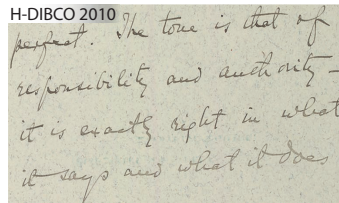 H-DIBCO 2010
perfect. The tone is that of
responsibility and authority—
it is exactly right in what
it says and what it does